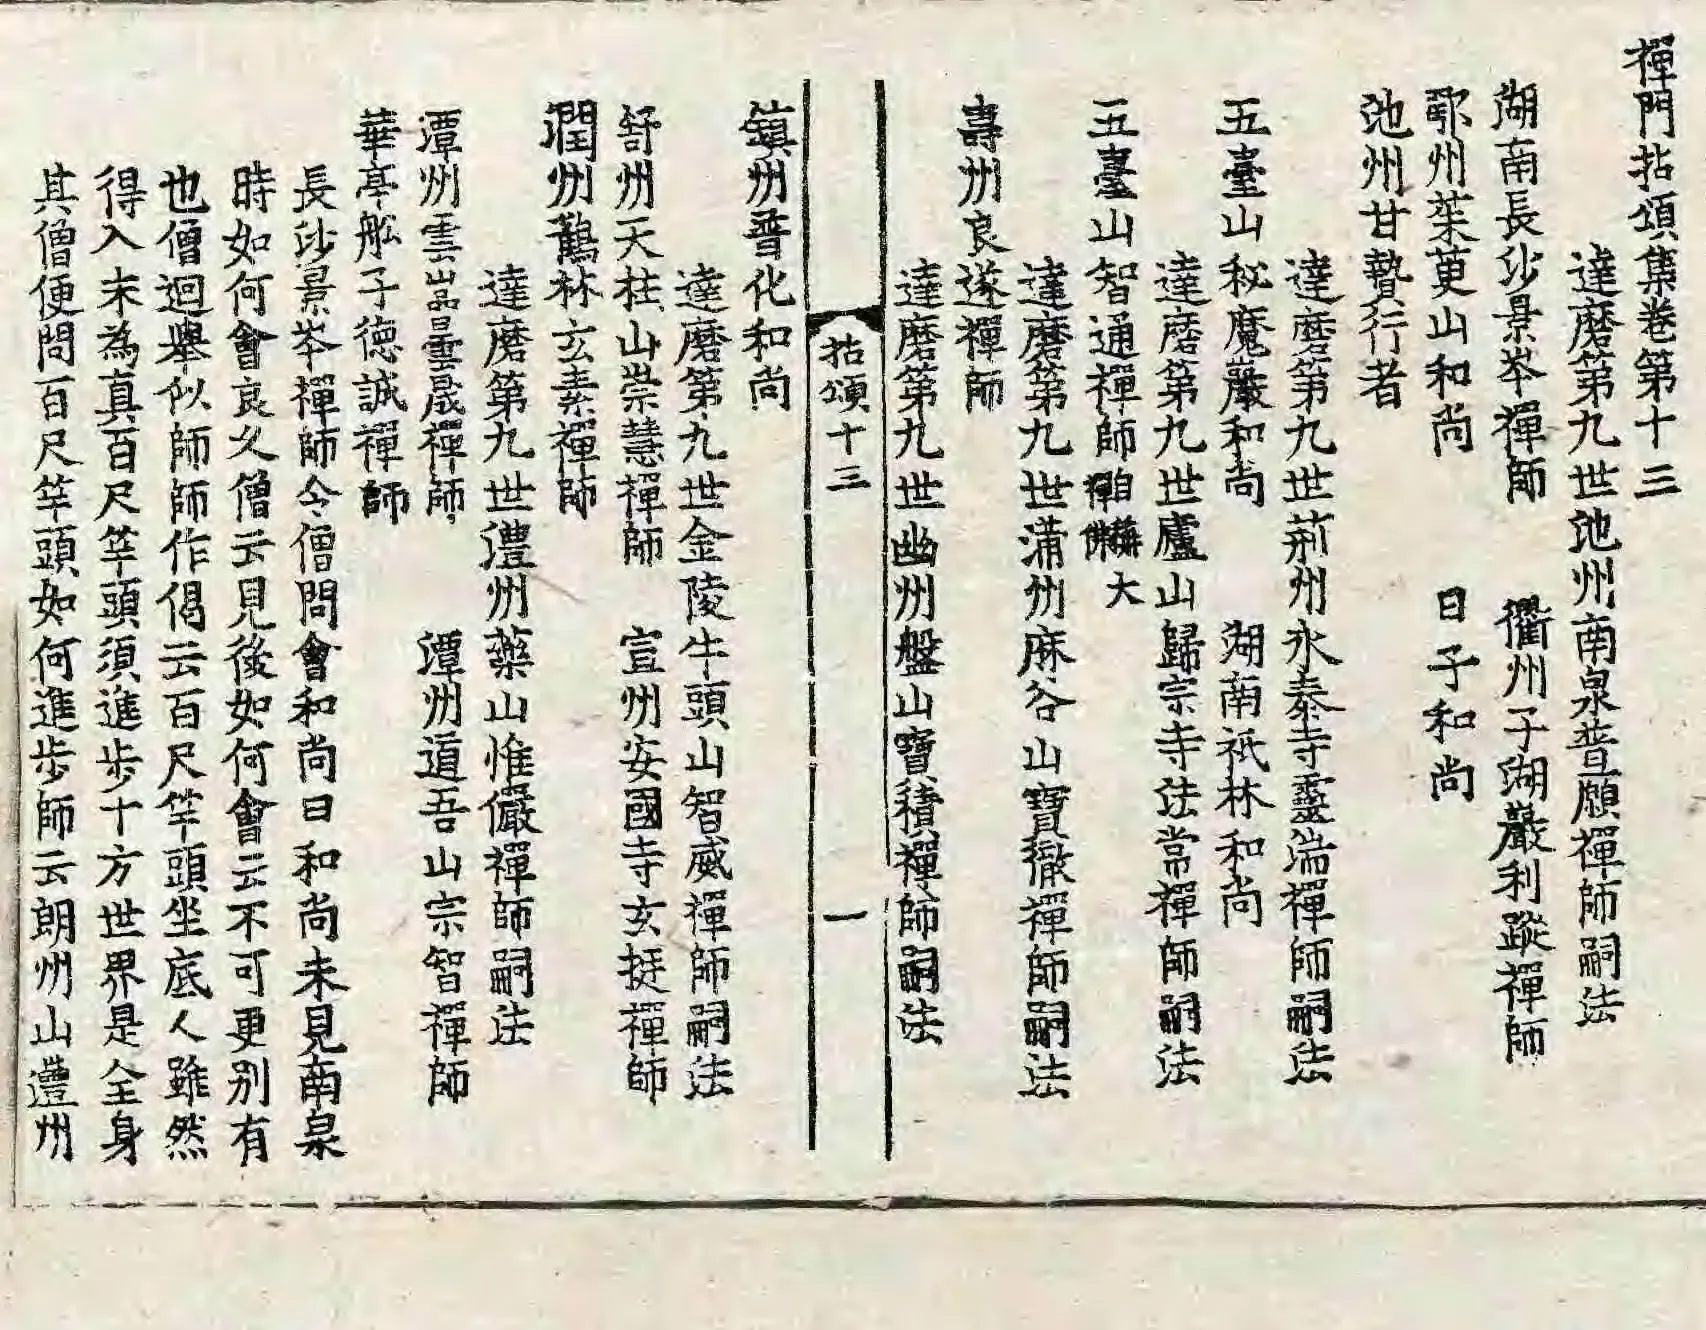 禪門拈頌集卷第十三
達磨第九世池州南泉普願禪師嗣法
湖南長沙景岑禪師　衢州子湖巖利蹤禪師
鄂州茱萸山和尚　日子和尚
池州甘贄行者
達磨第九世荊州永泰寺靈湍禪師嗣法
五臺山秘魔巖和尚　湖南祇林和尚
達磨第九世廬山歸宗寺法常禪師嗣法
五臺山智通禪師自稱大禪佛
達磨第九世蒲州麻谷山寶徹禪師嗣法
壽州良遂禪師
達磨第九世幽州盤山寶積禪師嗣法
拈頌十三　一
鎮州普化和尚
達磨第九世金陵牛頭山智威禪師嗣法
舒州天柱山崇慧禪師　宣州安國寺玄挺禪師
潤州鶴林玄素禪師
達磨第九世澧州藥山惟儼禪師嗣法
潭州雲嵓曇晟禪師　潭州道吾山宗智禪師
華亭舩子德誠禪師
長沙景岑禪師令僧問會和尚曰和尚未見南泉
時如何會良久僧云見後如何會云不可更別有
也僧迴舉似師師作偈云百尺竿頭坐底人雖然
得入未為真百尺竿頭須進步十方世界是全身
其僧便問百尺竿頭如何進步師云朗州山澧州